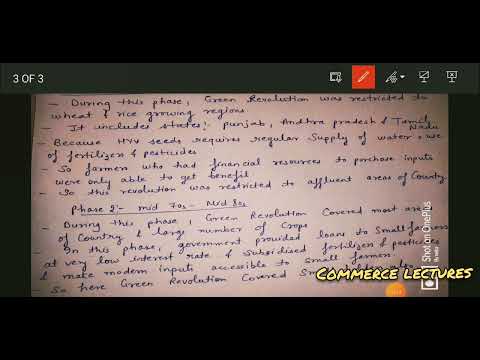 3 OF 3
- During this phase, Green Revolution was restricted to
wheat & rice growing regions.
- It includes states:- punjab, Andhra pradesh & Tamil Nadu
- Because HYV seeds requires regular Supply of water, use
of fertilizers & pesticides
- So farmers who had financial resources to purchase inputs
were only able to get benefit
- So this revolution was restricted to affluent areas of Country
Phase 2:- mid 70s - Mid 80s
- During this phase, Green Revolution Covered most areas
of Country & large number of Crops
- In this phase, government provided loans to Small farmers
at very low interest rate & Subsidised fertilizers & pesticides
& make modern inputs accessible to small farmers.
- So here Green Revolution Covered
COMMERCE LECTURES
Shot on OnePlus